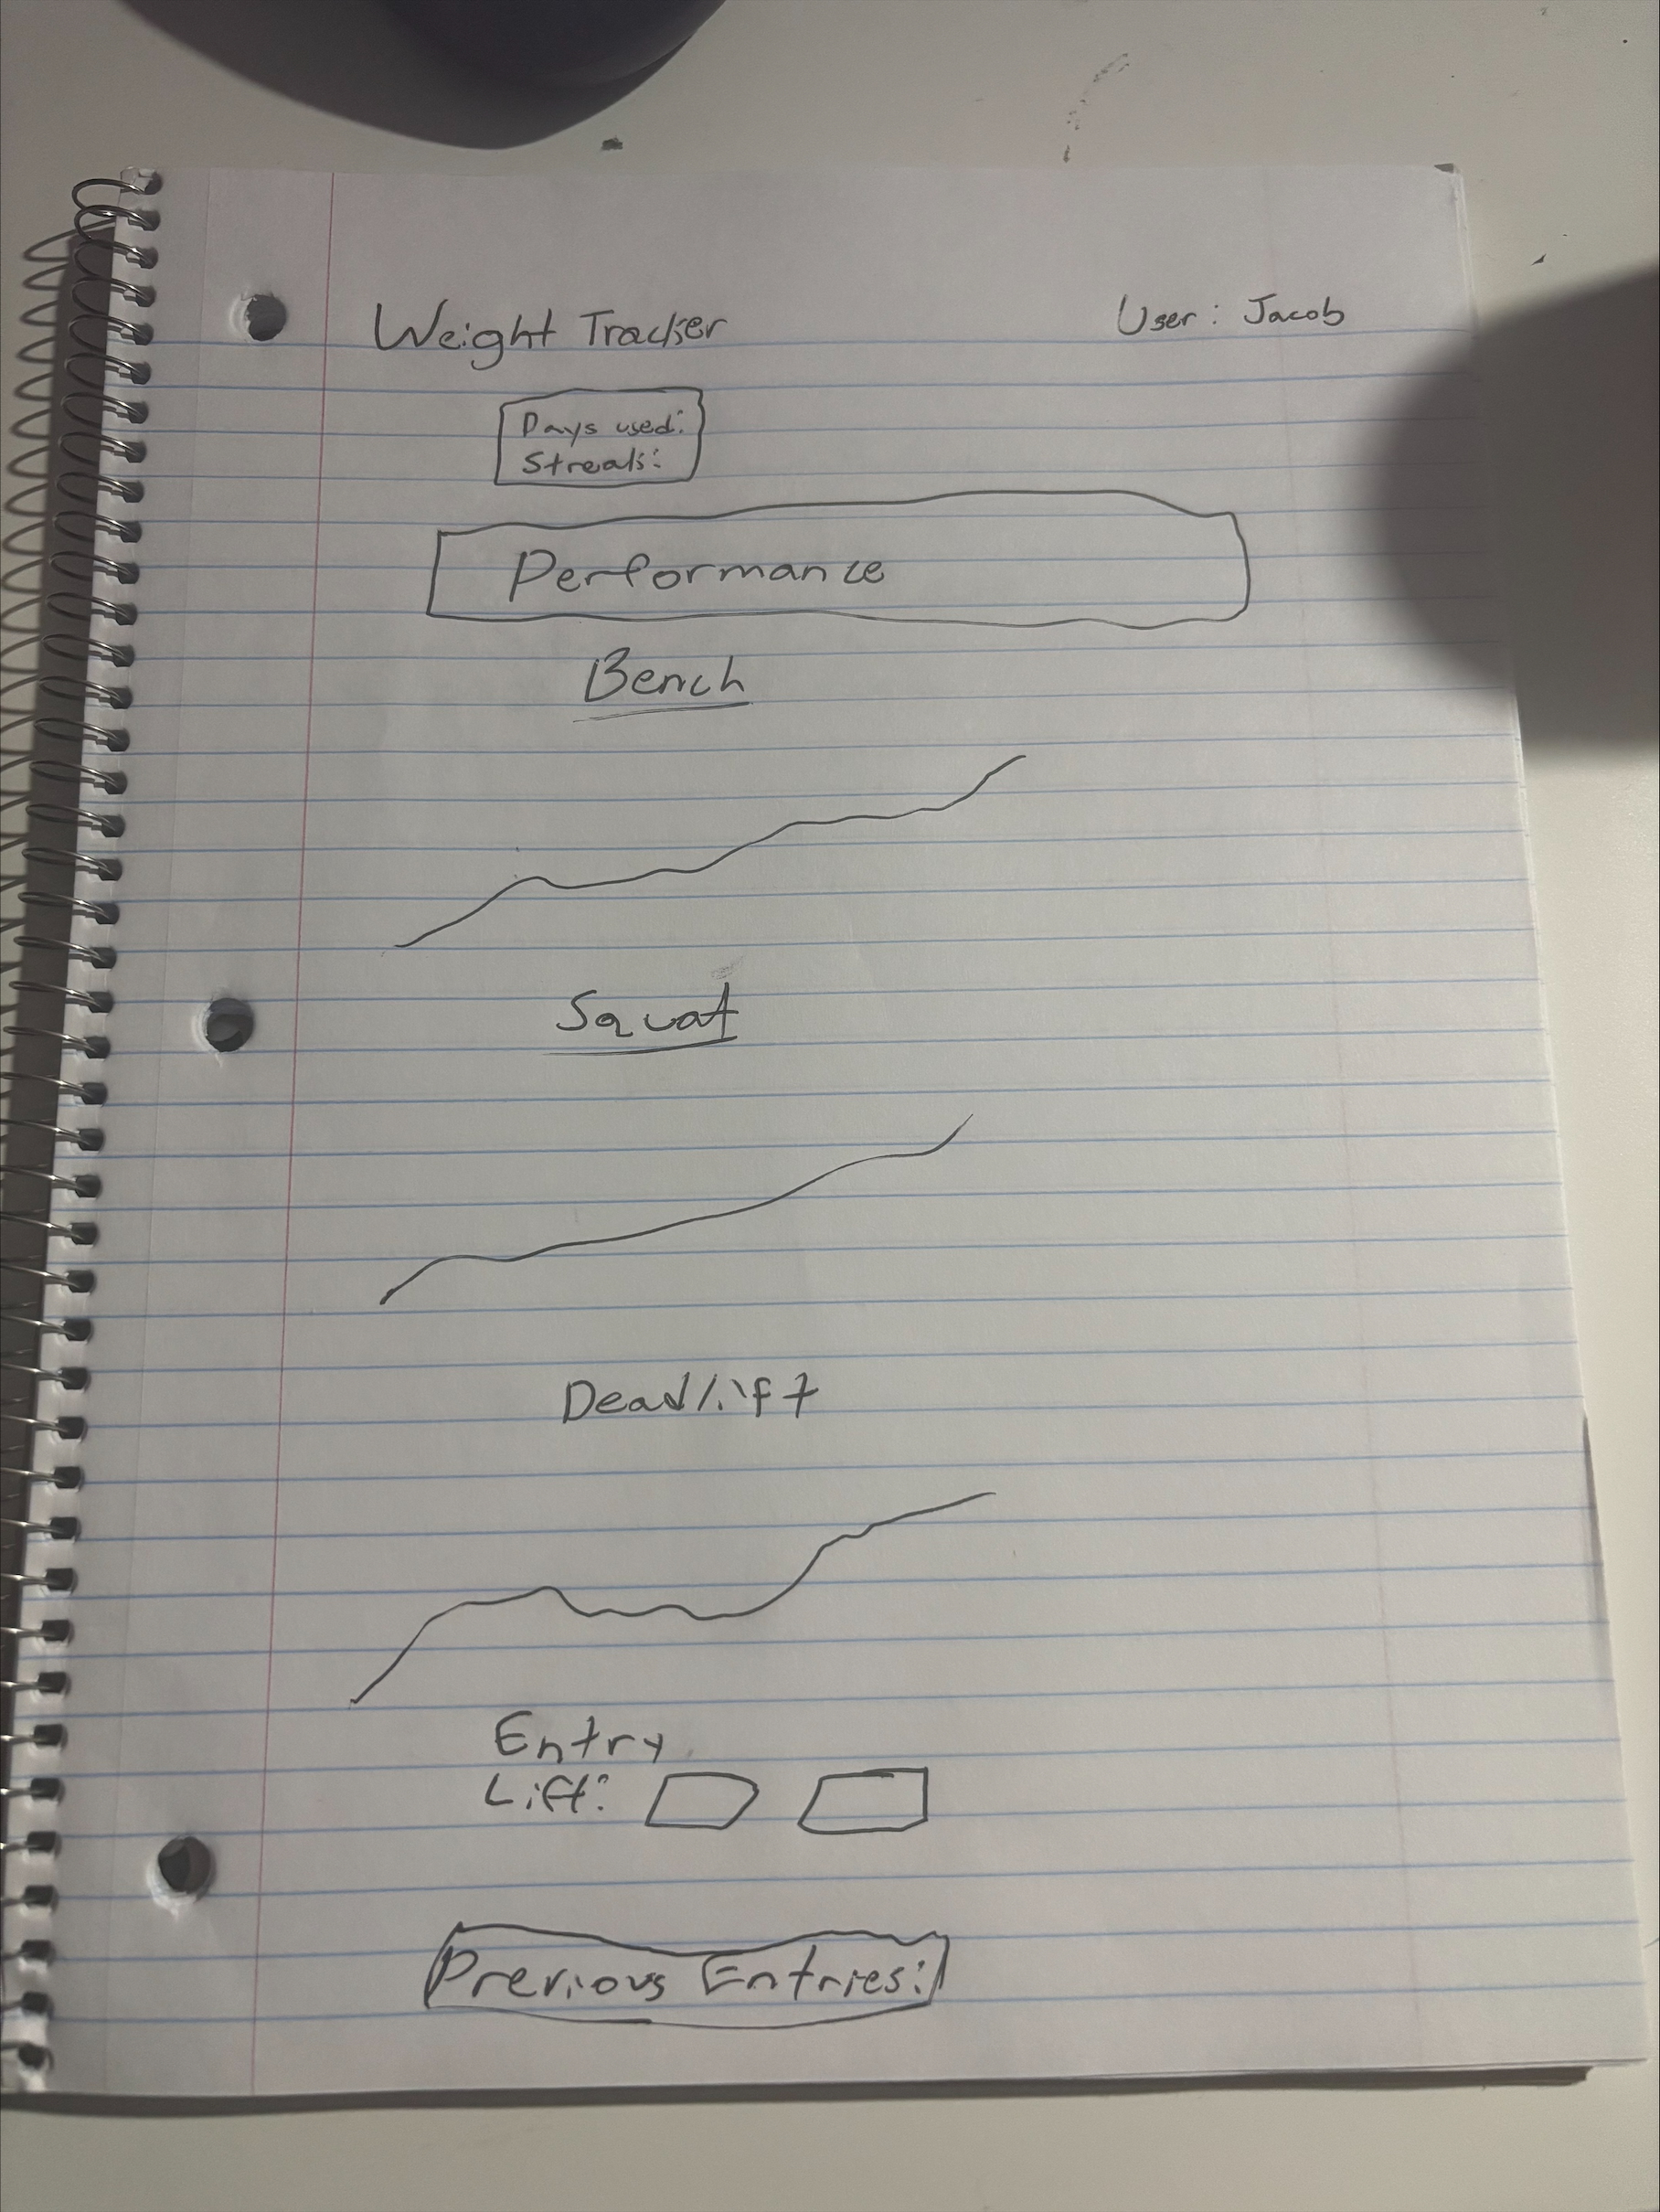 Weight Tracker
User: Jacob
Days used:
Streak:
Performance
Bench
Squat
Deadlift
Entry
Lift:
Previous Entries: